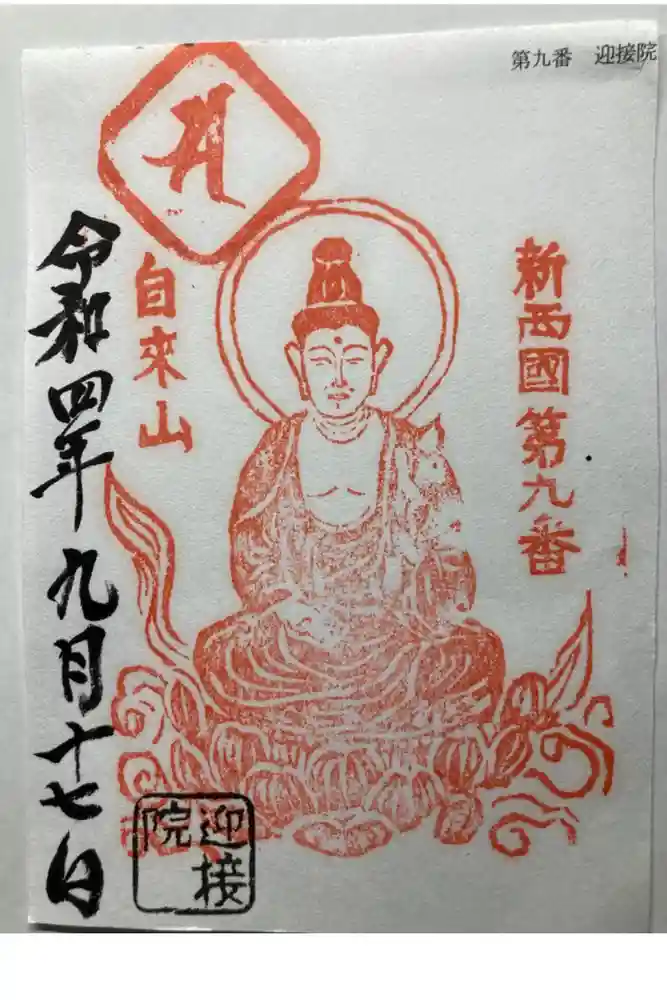 第九番 迎接院
新西國第九番
自來山
令和四年九月十七日
迎接
院